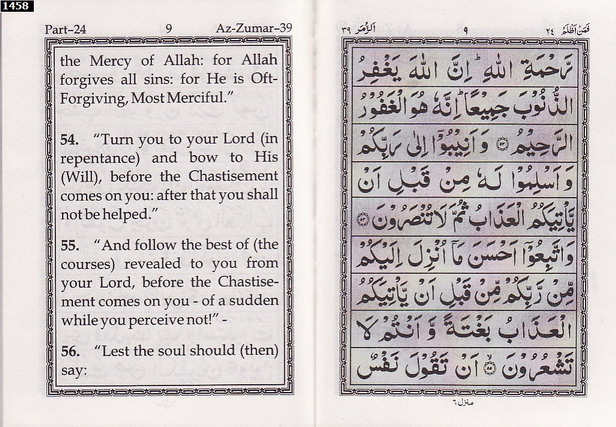 1458
Part–24 9 Az-Zumar–39
the Mercy of Allah: for Allah
forgives all sins: for He is Oft-
Forgiving, Most Merciful.”
54. “Turn you to your Lord (in
repentance) and bow to His
(Will), before the Chastisement
comes on you: after that you shall
not be helped.”
55. “And follow the best of (the
courses) revealed to you from
your Lord, before the Chastise-
ment comes on you - of a sudden
while you perceive not!” -
56. “Lest the soul should (then)
say:
فَمَنْ اَظْلَمُ ٢٤ ٩ اَلزُّمَر ٣٩
رَّحْمَةِ اللهِ ؕ اِنَّ اللهَ يَغْفِرُ
الذُّنُوْبَ جَمِيْعًا ؕ اِنَّهٗ هُوَ الْغَفُوْرُ
الرَّحِيْمُ ٥٣ وَ اَنِيْبُوْۤا اِلٰى رَبِّكُمْ
وَ اَسْلِمُوْا لَهٗ مِنْ قَبْلِ اَنْ
يَّاْتِيَكُمُ الْعَذَابُ ثُمَّ لَا تُنْصَرُوْنَ ٥٤
وَاتَّبِعُوْۤا اَحْسَنَ مَاۤ اُنْزِلَ اِلَيْكُمْ
مِّنْ رَّبِّكُمْ مِّنْ قَبْلِ اَنْ يَّاْتِيَكُمُ
الْعَذَابُ بَغْتَةً وَّ اَنْتُمْ لَا
تَشْعُرُوْنَ ٥٥ اَنْ تَقُوْلَ نَفْسٌ
منزل ٦